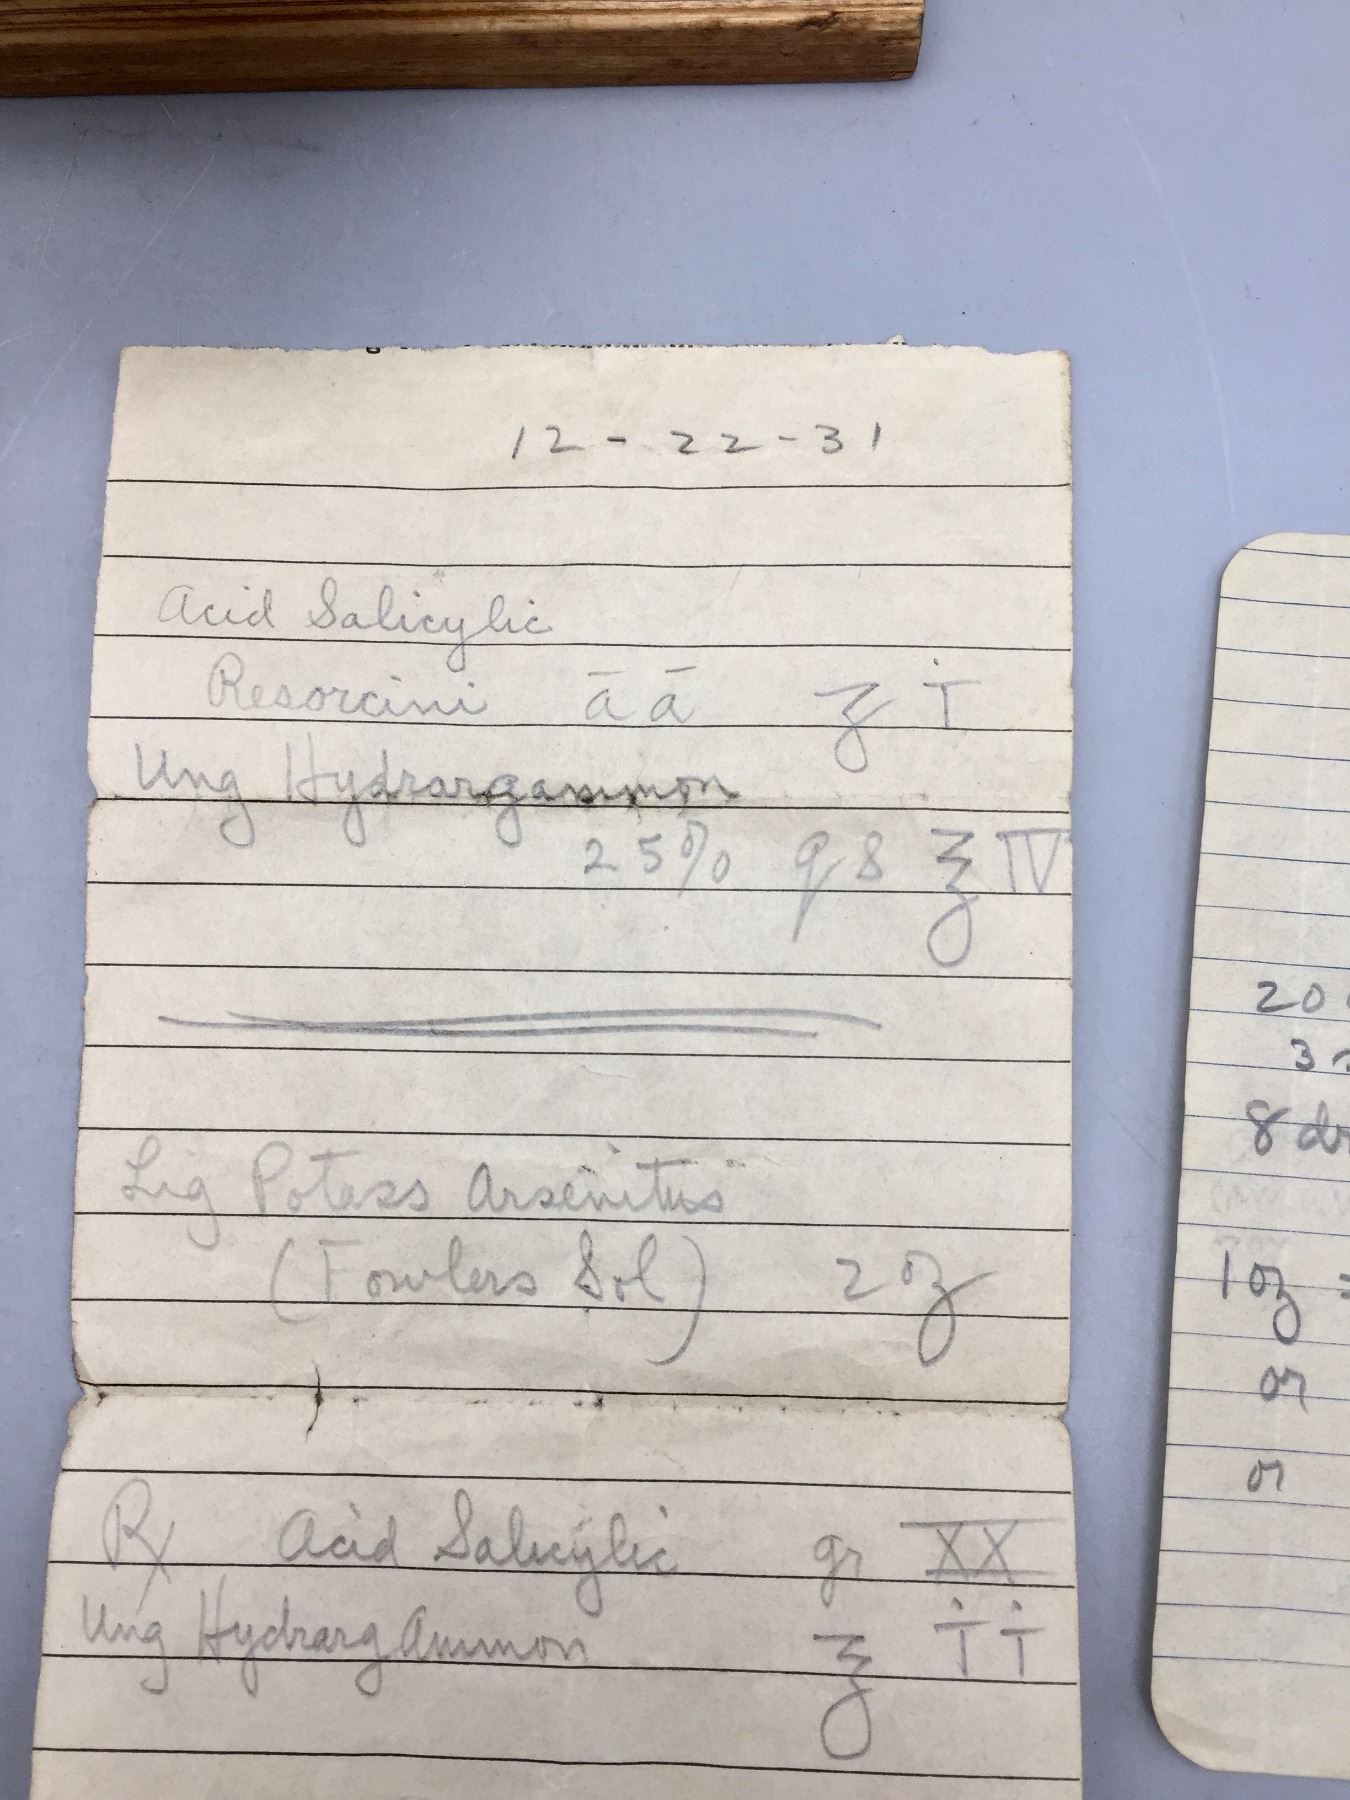 12 - 22 - 31
Acid Salicylic
Resorcini āā ʒ i
Ung Hydrarg ammon
25% qs ℥ IV
Liq Potass Arsenitus
(Fowlers Sol) 2 oz
Rx Acid Salicylic gr XX
Ung Hydrarg Ammon ℥ ii
20
3
8 dr
1 oz =
or
or